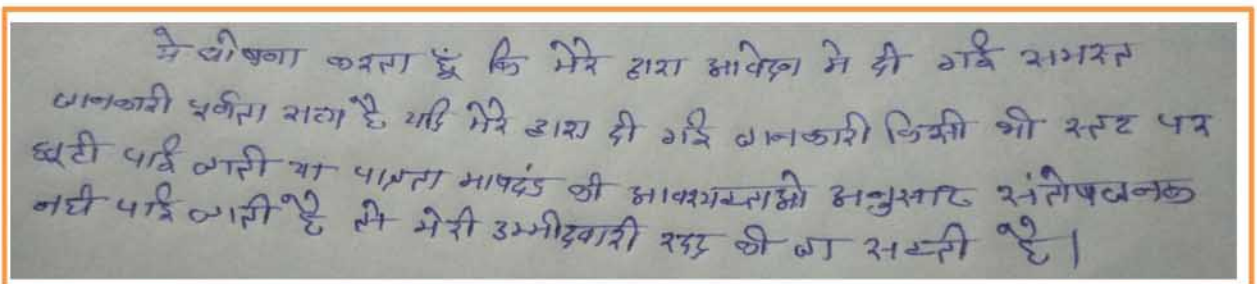 मे घोषना करता हूँ कि मेरे द्वारा आवेदन मे दी गई समस्त
जानकारी पूर्णता सत्य है यदि मेरे द्वारा दी गई जानकारी किसी भी स्तट पर
झूटी पाई जाती या पात्रता मापदंड की आवश्यक्ताओ अनुसाट संतोषजनक
नही पाई जाती है तो मेरी उम्मीदवारी रद्द की जा सक्ती है।